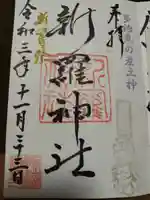 多治見の産土神
奉拝
新羅神社
新嘗祭
令和三年十一月二十三日